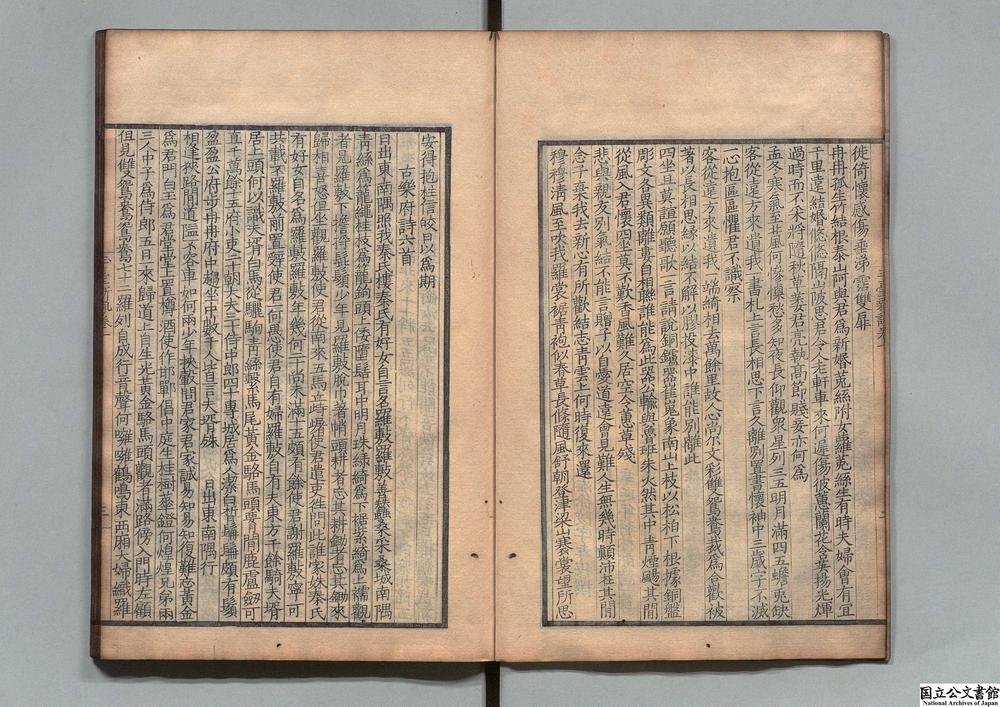 徙倚懷感傷垂涕霑雙扉
冉冉孤生竹結根泰山阿與君爲新婚菟絲附女蘿菟絲生有時夫婦會有宜
千里遠結婚悠悠隔山陂思君令人老軒車來何遲傷彼蕙蘭花含英揚光煇
過時而不采將隨秋草萎君亮執高節賤妾亦何爲
孟冬寒氣至北風何慘慄愁多知夜長仰觀衆星列三五明月滿四五蟾兔缺
客從遠方來遺我一書札上言長相思下言久離別置書懷袖中三歲字不滅
一心抱區區懼君不識察
客從遠方來遺我一端綺相去萬餘里故人心尚尔文彩雙鴛鴦裁爲合歡被
著以長相思緣以結不解以膠投漆中誰能別離此
四坐且莫諠願聽歌一言請說銅鑪器崔嵬象南山上枝以松柏下根據銅盤
彫文各異類離婁自相聯誰能爲此器公輸與魯班朱火然其中青煙颺其間
從風入君懷四坐莫不歡香風難久居空令蕙草殘
悲與親友別氣結不能言贈子以自愛道遠會見難人生無幾時顛沛在其間
念子棄我去新心有所歡結志青雲上何時復來還
穆穆清風至吹我羅裳裾青袍似春草長條隨風舒朝登津梁山褰裳望所思
安得抱柱信皎日以爲期
古樂府詩六首
日出東南隅照我秦氏樓秦氏有好女自言名羅敷羅敷善蠶桑采桑城南隅
青絲爲籠繩桂枝爲籠鉤頭上倭墮髻耳中明月珠綠綺爲下裾紫綺爲上襦觀
者見羅敷下擔捋髭鬚少年見羅敷脫巾著帩頭耕者忘其耕鋤者忘其鋤來
歸相喜怒但坐觀羅敷使君從南來五馬立峙嶓使君遣吏往問此誰家姝秦氏
有好女自名爲羅敷羅敷年幾何二十尚未滿十五頗有餘使君謝羅敷寧可
共載不羅敷前置辭使君一何愚使君自有婦羅敷自有夫東方千餘騎夫壻
居上頭何以識夫壻白馬從驪駒青絲繫馬尾黃金絡馬頭腰間鹿盧劒可
直千萬餘十五府小吏二十朝大夫三十侍中郎四十專城居爲人潔白皙鬑鬑頗有鬚
盈盈公府步冉冉府中趨坐中數千人皆言夫壻殊　日出東南隅行
相逢狹路間道隘不容車如何兩少年挾轂問君家君家誠易知易知復難忘黃金
爲君門白玉爲君堂堂上置樽酒使作邯鄲倡中庭生桂樹華鐙何煌煌兄弟兩
三人中子爲侍郎五日一來歸道上自生光黃金絡馬頭觀者滿路傍入門時左顧
但見雙鴛鴦鴛鴦七十二羅列自成行音聲何噰噰鶴鳴東西廂大婦織羅
国立公文書館
National Archives of Japan